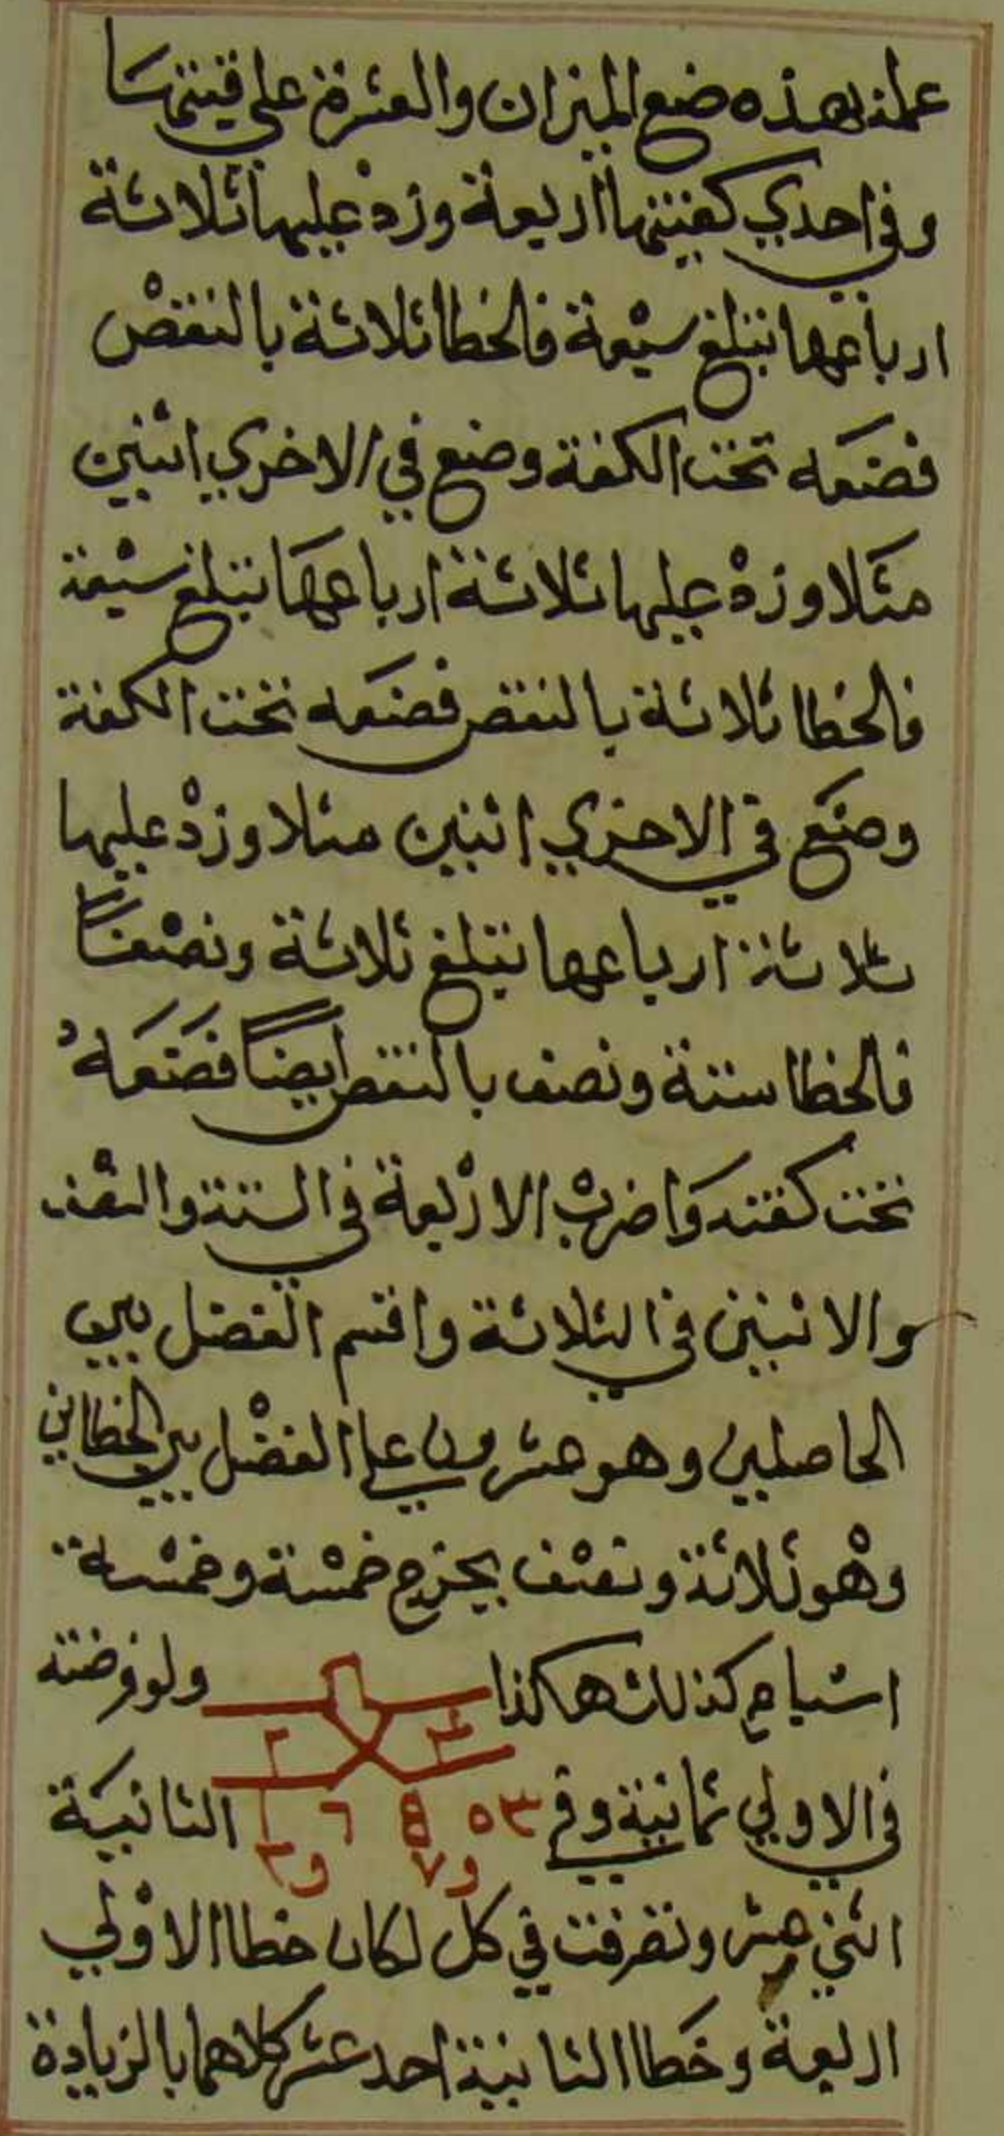 عملنه بهذه ضع الميزان والعشرة على قبتها
وفي احدي كفتيها اربعة وزد عليها ثلاثة
ارباعها تبلغ سبعة فالخطا ثلاثة بالنقص
فضعه تحت الكفة وضع في الاخري اثنين
مثلا وزد عليها ثلاثة ارباعها تبلغ سبعة
فالخطا ثلاثة بالنقص فضعه تحت الكفة
وضع في الاخري اثنين مثلا وزد عليها
ثلاثة ارباعها تبلغ ثلاثة ونصفًا
فالخطا ستة ونصف بالنقص ايضًا فضعَهُ
تحت كفته واضرب الاربعة في الستة والنصف
والاثنين في الثلاثة واقسم الفضل بين
الحاصلين وهو عشرون علي الفضل بين الخطاين
وهو ثلاثة ونصف يخرج خمسة وخمسة
اسباع كذلك هكذا ولو فرضته
في الاولي ثمانية وفي الثانية
اثني عشر وتصرفت في كل لكان خطا الاولي
اربعة وخطا الثانية احد عشر كلاهما بالزيادة